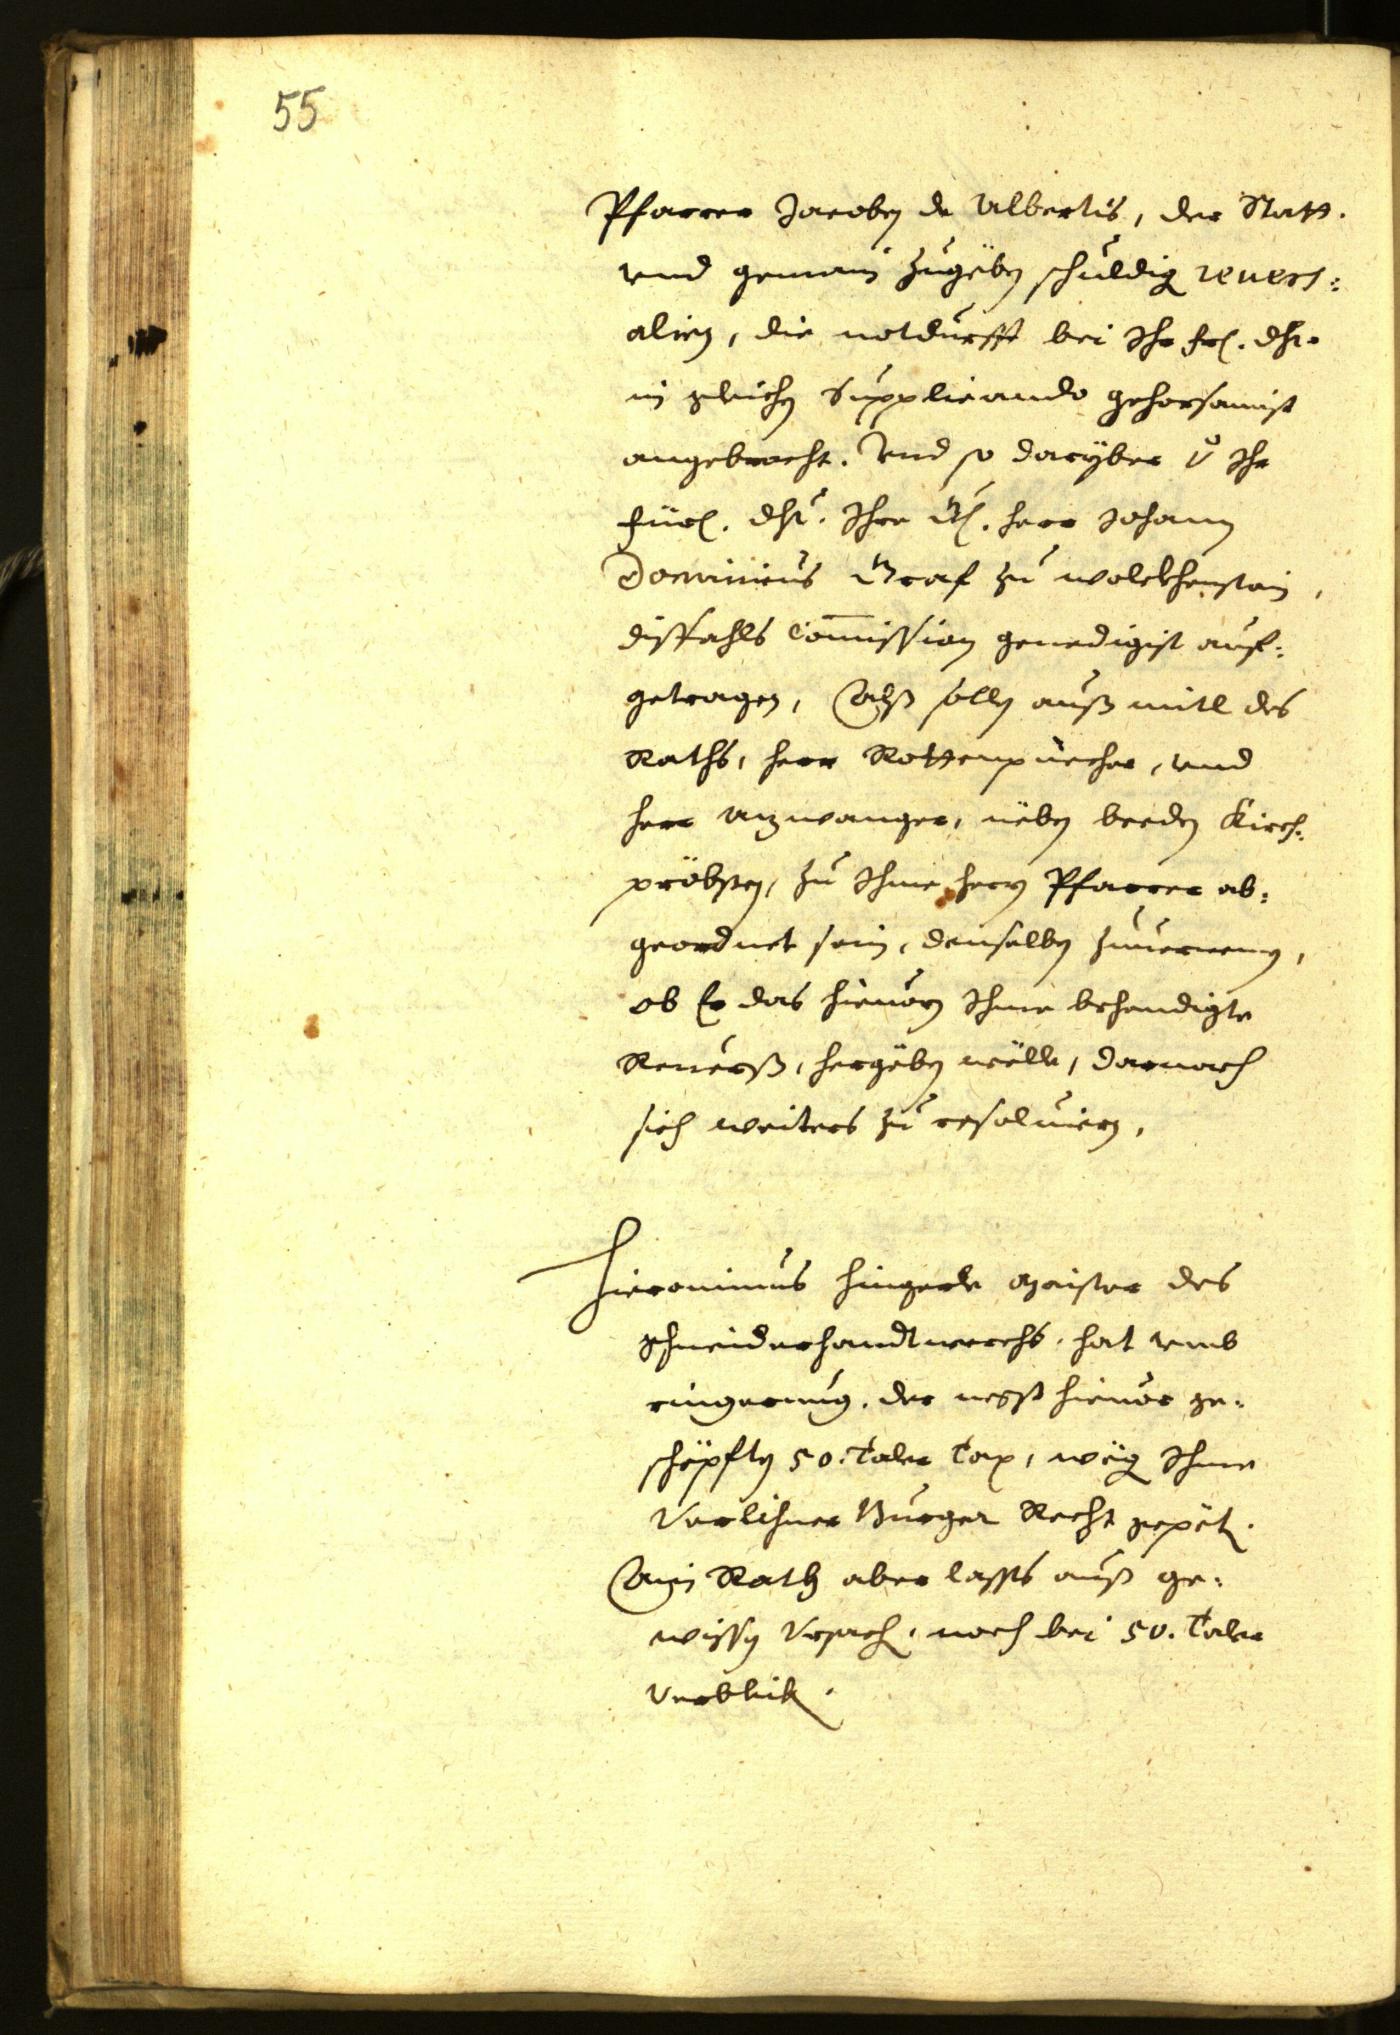 55
Pfarrer Jacoben de Albertis, der Statt.
vnd gemain zugëben schuldig reuers:
alien, die notdurfft bei Ihr frl. dht.
in gleichen Supplicando gehorsamist
angebracht. Vnd so darÿber v Ihr
fürl. dht. Ihre Gl. herr Johann
Dominicus Graf zu wolckhenstain,
dissfahls Commission genedigist auf:
getragen, Alß sollen auß mitl des
Raths, herr Rottenpuecher, vnd
herr Azwanger, nëben beeden Kirch:
pröbsten, zu Ihme herrn Pfarrer ab:
geordnet sein, denselben zuuernemen,
ob Er das hieuorn Ihme behendigte
Reuerß, hergëben wëlle, darnach
sich weiters zu resoluiern.
Hieronimus hingerle Maister des
Schneiderhandtwerchs. hat vmb
ringerung. der negst hieuor ge:
schöpften 50. Taler Tax, wëg Ihme
Verlihner Burger Recht gepët.
Ain Rath aber lassts auß ge:
wissen Vrsach, noch bei 50. Taler
Verbleib.